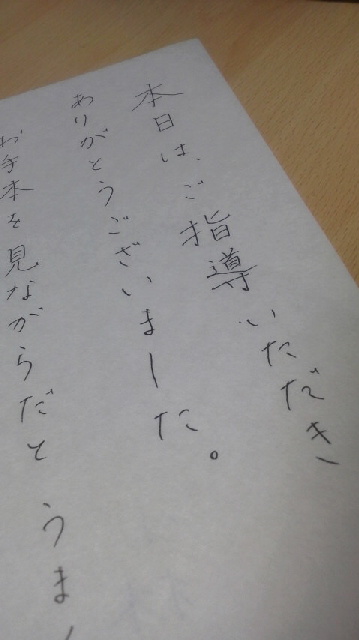 本日は、ご指導いただき
ありがとうございました。
お手本を見ながらだと うま